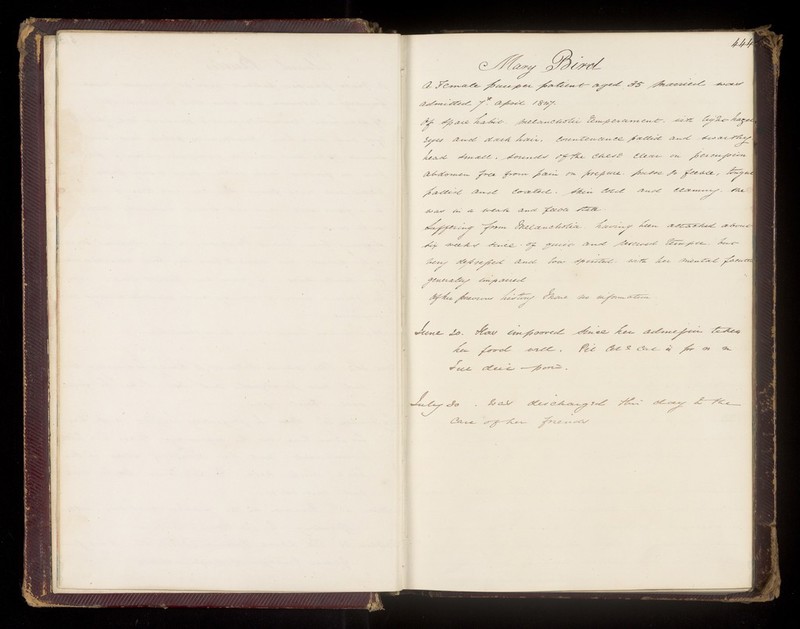 444
Mary Bird
A Female pauper patient aged 35 Married was
admitted 7th April 1847.
Of spare habit melancholic temperament. with light hazel
Eyes and dark hair. Countenance pallid and swarthy
head small. sounds of the chest clear on percussion
abdomen free from pain on pressure pulse feeble, tongue
pallid and coated. Skin cold and clammy. she
was in a weak and state
Suffering from Melancholia having been attacked about
six weeks since. of quiet and reserved temper but
very depressed and low spirited with her mental faculties
generally impaired
Of her previous history I have no information
June 20. Has improved since her admission takes
her food well. Pil
July 30. Was discharged this day to the
Care of her friends